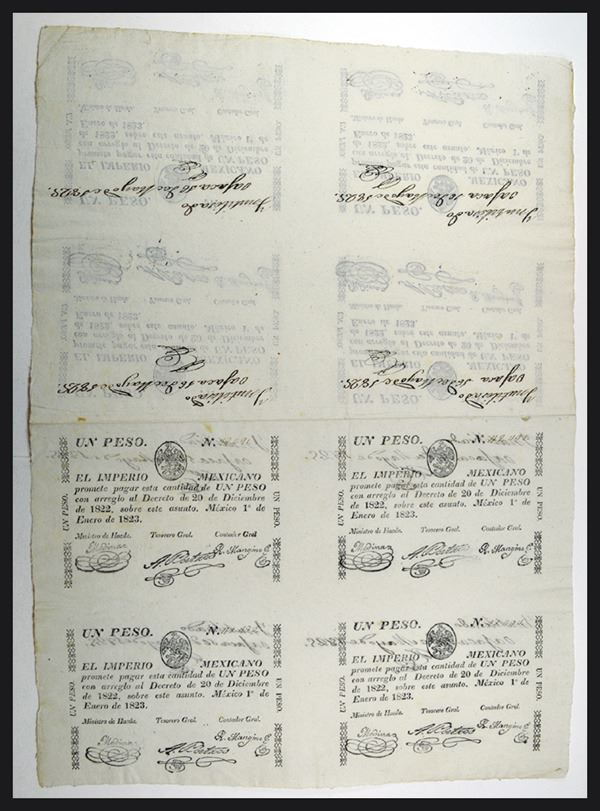 Inutilizado
Oajaca 16 de Mayo de 1825.
Inutilizado
Oajaca 16 de Mayo de 1825.
Inutilizado
Oajaca 16 de Mayo de 1825.
Inutilizado
Oajaca 16 de Mayo de 1825.
UN PESO. N.
EL IMPERIO MEXICANO
promete pagar esta cantidad de UN PESO
con arreglo al Decreto de 20 de Diciembre
de 1822, sobre este asunto. México 1º de
Enero de 1823.
Ministro de Hacda. Tesorero Gral. Contador Gral.
Medina R. Mangino
UN PESO.
UN PESO.
UN PESO. N.
EL IMPERIO MEXICANO
promete pagar esta cantidad de UN PESO
con arreglo al Decreto de 20 de Diciembre
de 1822, sobre este asunto. México 1º de
Enero de 1823.
Ministro de Hacda. Tesorero Gral. Contador Gral.
Medina R. Mangino
UN PESO.
UN PESO.
UN PESO. N.
EL IMPERIO MEXICANO
promete pagar esta cantidad de UN PESO
con arreglo al Decreto de 20 de Diciembre
de 1822, sobre este asunto. México 1º de
Enero de 1823.
Ministro de Hacda. Tesorero Gral. Contador Gral.
Medina R. Mangino
UN PESO.
UN PESO.
UN PESO. N.
EL IMPERIO MEXICANO
promete pagar esta cantidad de UN PESO
con arreglo al Decreto de 20 de Diciembre
de 1822, sobre este asunto. México 1º de
Enero de 1823.
Ministro de Hacda. Tesorero Gral. Contador Gral.
Medina R. Mangino
UN PESO.
UN PESO.